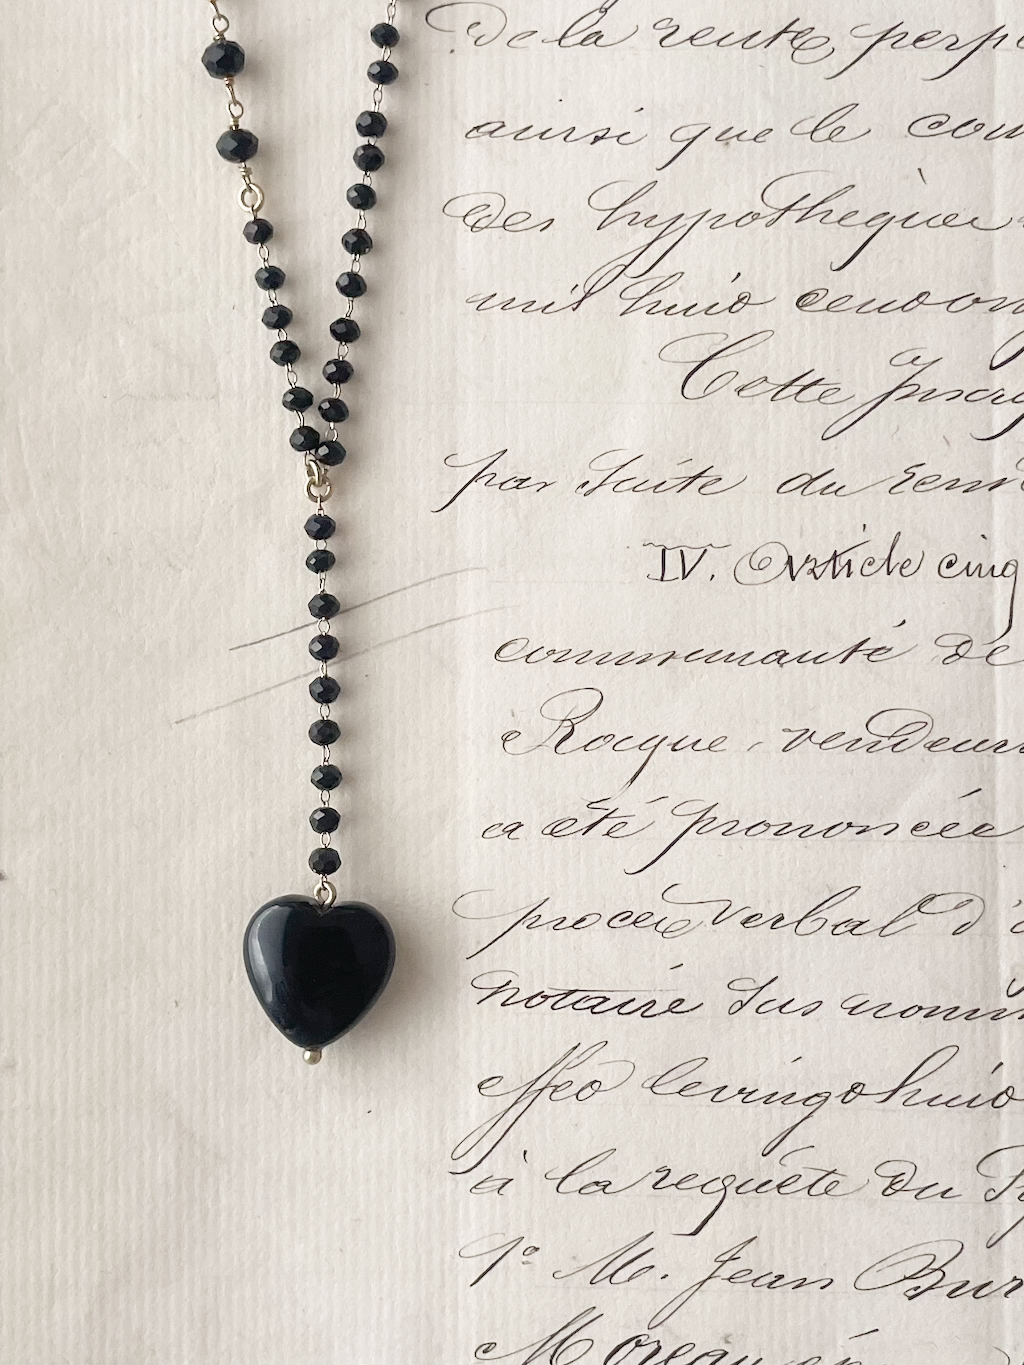 De la rente perp
ainsi que le con
des hypothèques
mil huit cent on
Cette Inscrip
par suite du rem
IV. Article cinq
communauté de
Rocque, vendeur
a été prononcée
procès verbal d'
notaire sus nomm
effet le vingt huit
à la requête du P
1° M. Jean Bur
Moreau